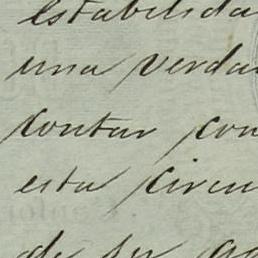 estabilida
una verda
contar con
esta circu
de su